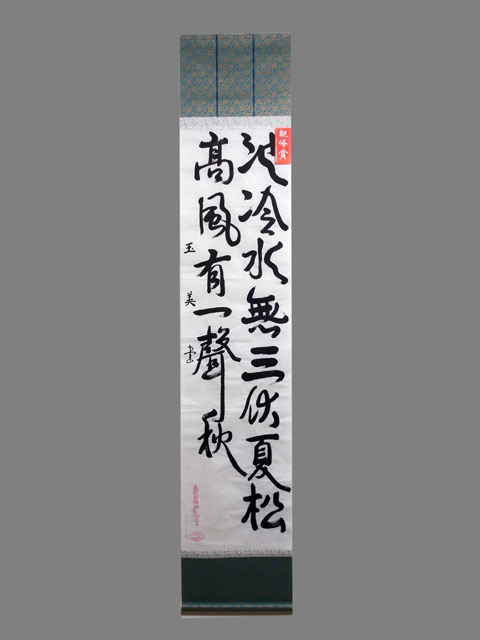 池冷水無三伏夏松
高風有一聲秋
玉美書
親峰賞